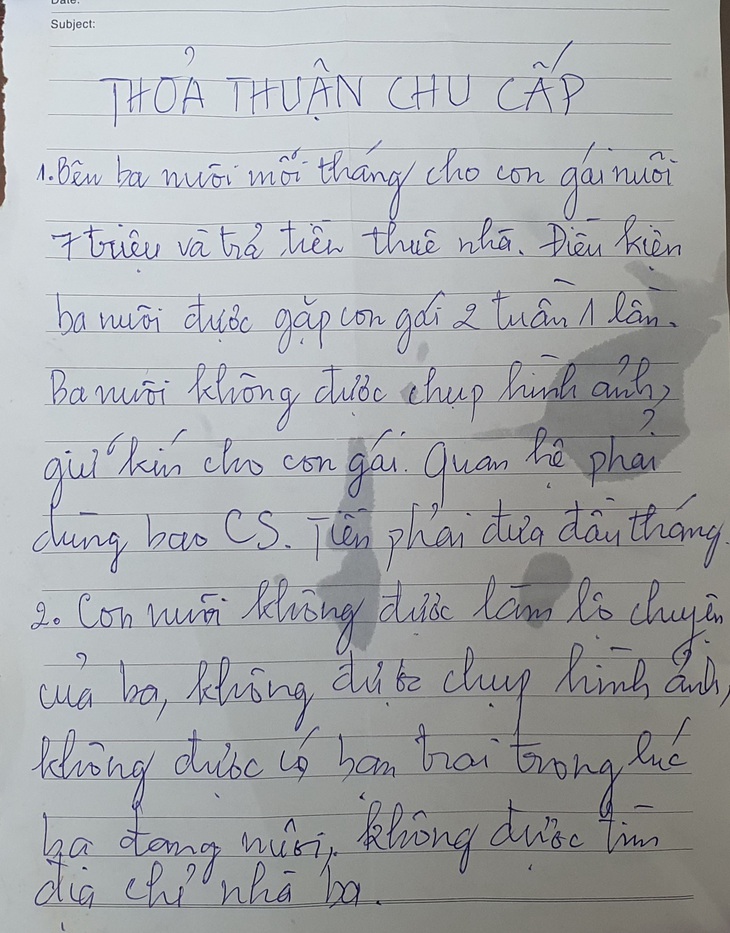 Date:
Subject:
THỎA THUẬN CHU CẤP
1. Bên ba nuôi mỗi tháng cho con gái nuôi
7 triệu và trả tiền thuê nhà. Điều kiện
ba nuôi được gặp con gái 2 tuần 1 lần.
Ba nuôi không được chụp hình ảnh,
giữ kín cho con gái. Quan hệ phải
dùng bao CS. Tiền phải đưa đầu tháng.
2. Con nuôi không được làm lộ chuyện
của ba, không được chụp hình ảnh,
không được có bạn trai trong lúc
ba đang nuôi, không được tìm
địa chỉ nhà ba.